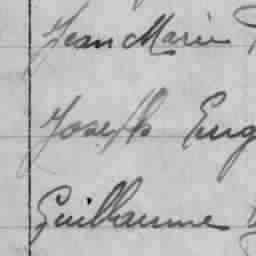 Jean Marie
Joseph Eug
Guillaume